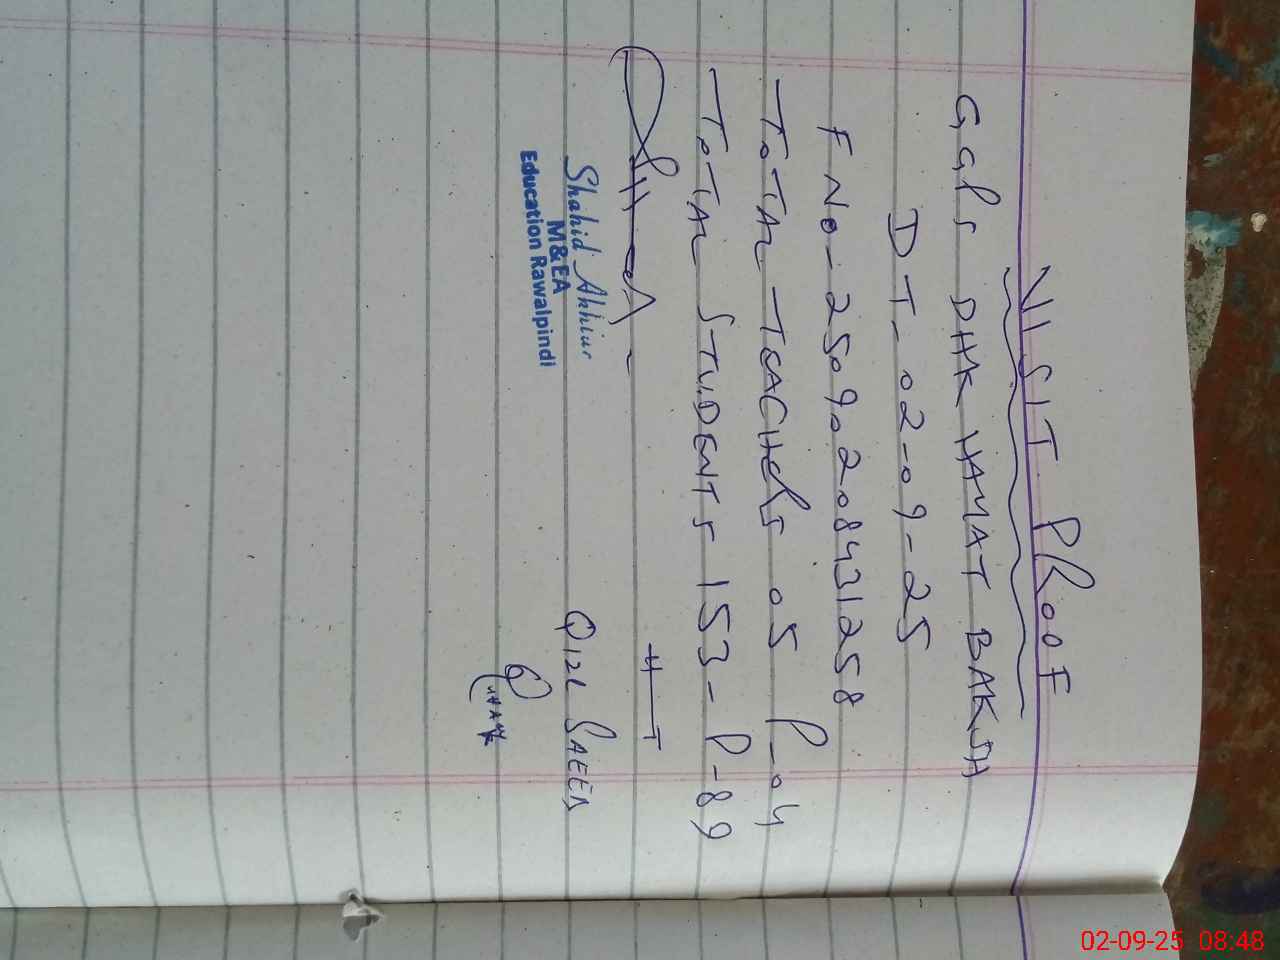 VISIT PROOF
GGPS DHK HAYAT BAKSH
DT-02-09-25
F No-25090208431258
TOTAL TEACHERS 05 P-04
TOTAL STUDENTS 153-P-89
H-T
Shahid Akhtar
M&EA
Education Rawalpindi
02-09-25 08:48